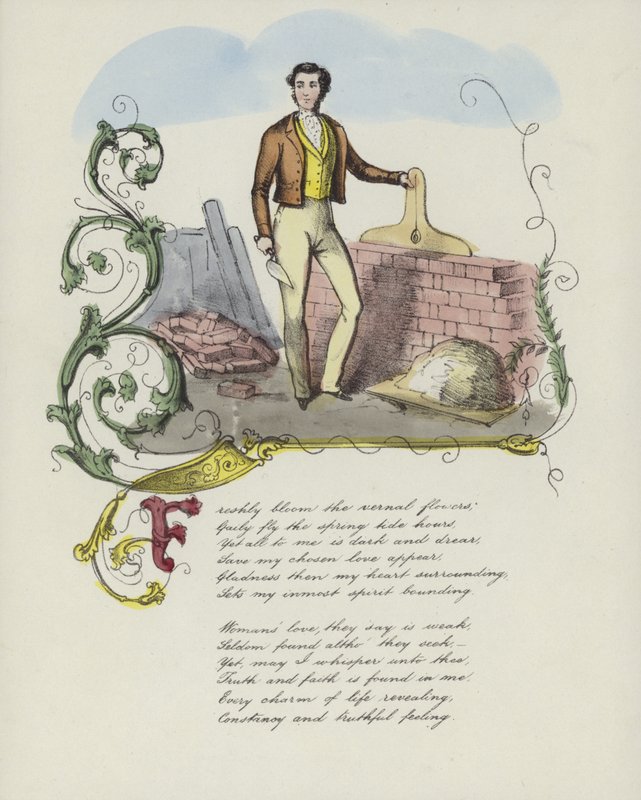 Freshly bloom the vernal flowers;
Gaily fly the spring tide hours,
Yet all to me is dark and drear,
Save my chosen love appear,
Gladness then my heart surrounding,
Sets my inmost spirit bounding.

Womans' love, they say is weak,
Seldom found altho' they seek,—
Yet, may I whisper unto thee,
Truth and faith is found in me,
Every charm of life revealing,
Constancy and truthful feeling.